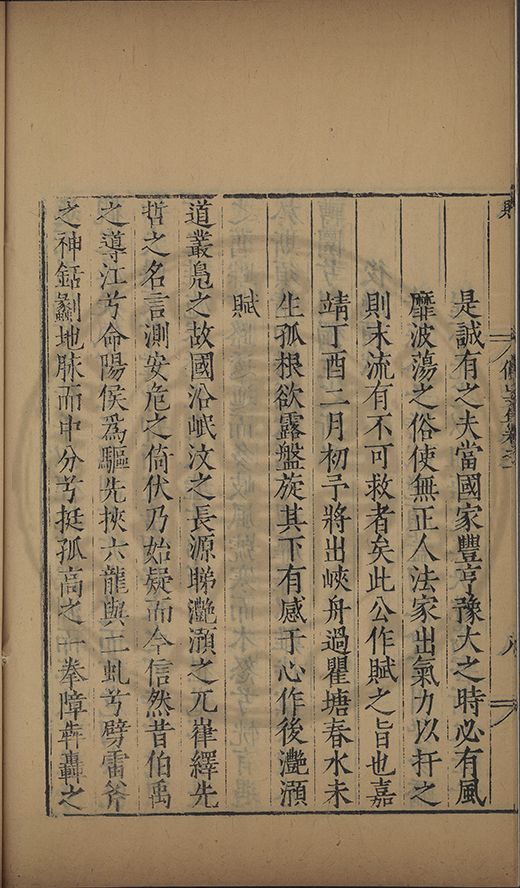 是誠有之夫當國家豐亨豫大之時必有風
靡波蕩之俗使無正人法家出氣力以扞之
則末流有不可救者矣此公作賦之旨也嘉
靖丁酉二月初予將出峽舟過瞿塘春水未
生孤根欲露盤旋其下有感于心作後灩澦
賦
道叢鳧之故國沿岷汶之長源睇灩澦之兀嵂繹先
哲之名言測安危之倚伏乃始疑而今信然昔伯禹
之導江兮命陽侯爲驅先挾六龍與二虬兮劈雷斧
之神銛劙地脉而中分兮挺孤高之一拳障犇轟之